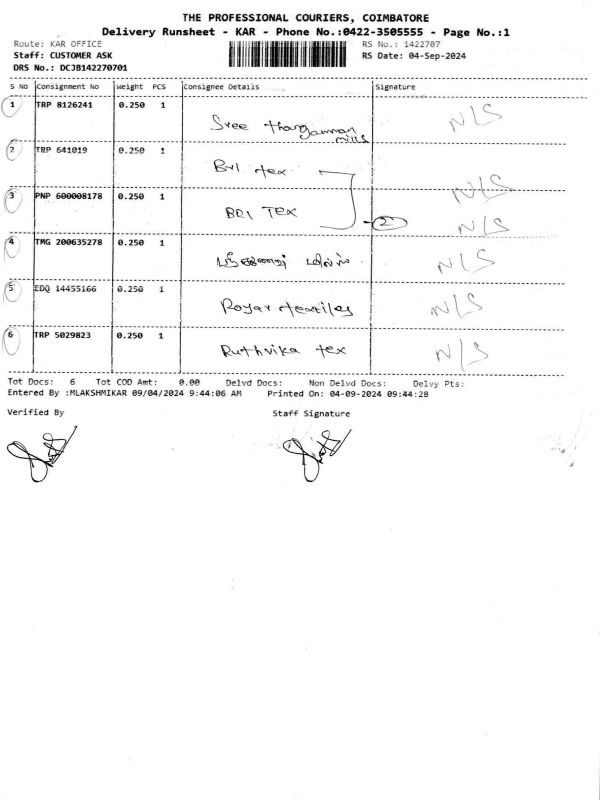 THE PROFESSIONAL COURIERS, COIMBATORE
Delivery Runsheet - KAR - Phone No.:0422-3505555 - Page No.:1
Route: KAR OFFICE RS No.: 1422707
Staff: CUSTOMER ASK RS Date: 04-Sep-2024
DRS No.: DCJB142270701
S No Consignment No Weight PCS Consignee Details Signature
1 TRP 8126241 0.250 1 Sree thangamman mills N/S
2 TRP 641019 0.250 1 Bri tex N/S
3 PNP 600008178 0.250 1 BRI TEX 2 N/S
4 TMG 200635278 0.250 1 மில்ஸ் N/S
5 EDQ 14455166 0.250 1 Royar textiles N/S
6 TRP 5029823 0.250 1 Ruthvika tex N/S
Tot Docs: 6 Tot COD Amt: 0.00 Delvd Docs: Non Delvd Docs: Delvy Pts:
Entered By :MLAKSHMIKAR 09/04/2024 9:44:06 AM Printed On: 04-09-2024 09:44:28
Verified By Staff Signature